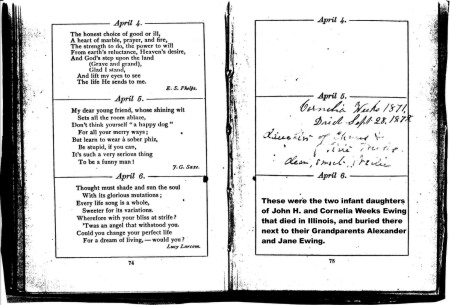 April 4.
The honest choice of good or ill,
A heart of marble, prayer, and fire,
The strength to do, the power to will
From earth's reluctance, Heaven's desire,
And God's step upon the land
(Grave and grand),
Glad I stand,
And lift my eyes to see
The life He sends to me.
E. S. Phelps.
April 5.
My dear young friend, whose shining wit
Sets all the room ablaze,
Don't think yourself "a happy dog"
For all your merry ways;
But learn to wear a sober phiz,
Be stupid, if you can,
It's such a very serious thing
To be a funny man!
J. G. Saxe.
April 6.
Thought must shade and sun the soul
With its glorious mutations;
Every life song is a whole,
Sweeter for its variations.
Wherefore with your bliss at strife?
'Twas an angel that withstood you.
Could you change your perfect life
For a dream of living,—would you?
Lucy Larcom.
74
April 4.
April 5.
Cornelia Weeks 1871
Died Sept 28, 
of
April 6.
These were the two infant daughters
of John H. and Cornelia Weeks Ewing
that died in Illinois, and buried there
next to their Grandparents Alexander
and Jane Ewing.
75